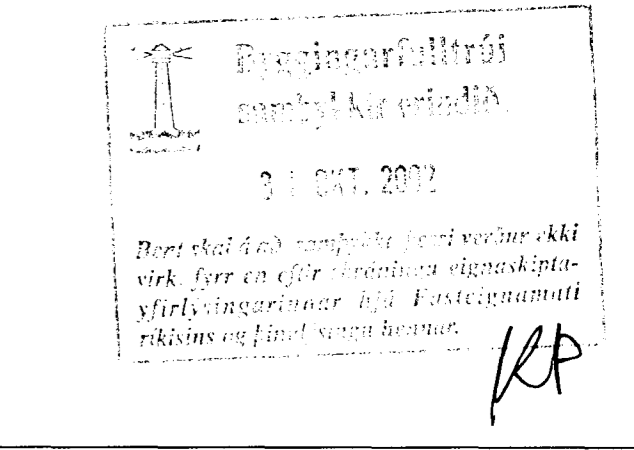 Byggingarfulltrúi
samþykkir erindið.
31 OKT. 2002
Bent skal á að samþykkt þessi verður ekki
virk, fyrr en eftir skráningu eignaskipta-
yfirlýsingarinnar hjá Fasteignamati
ríkisins og þinglýsingu hennar.
KP